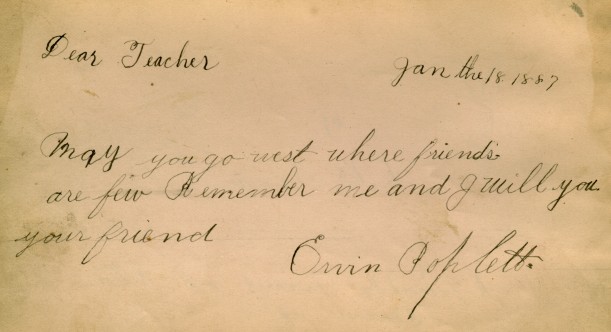 Dear Teacher
Jan the 18 1887
May you go west where friends
are few Remember me and I will you
your friend
Ervin Poplett.